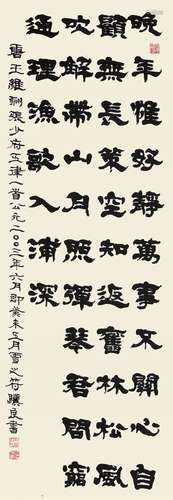 晚年惟好靜萬事不關心自
顧無長策空知返舊林松風
吹解帶山月照彈琴君問窮
通理漁歌入浦深
唐王維酬張少府五律一首公元二〇〇三年六月即癸未五月雪之符驥良書